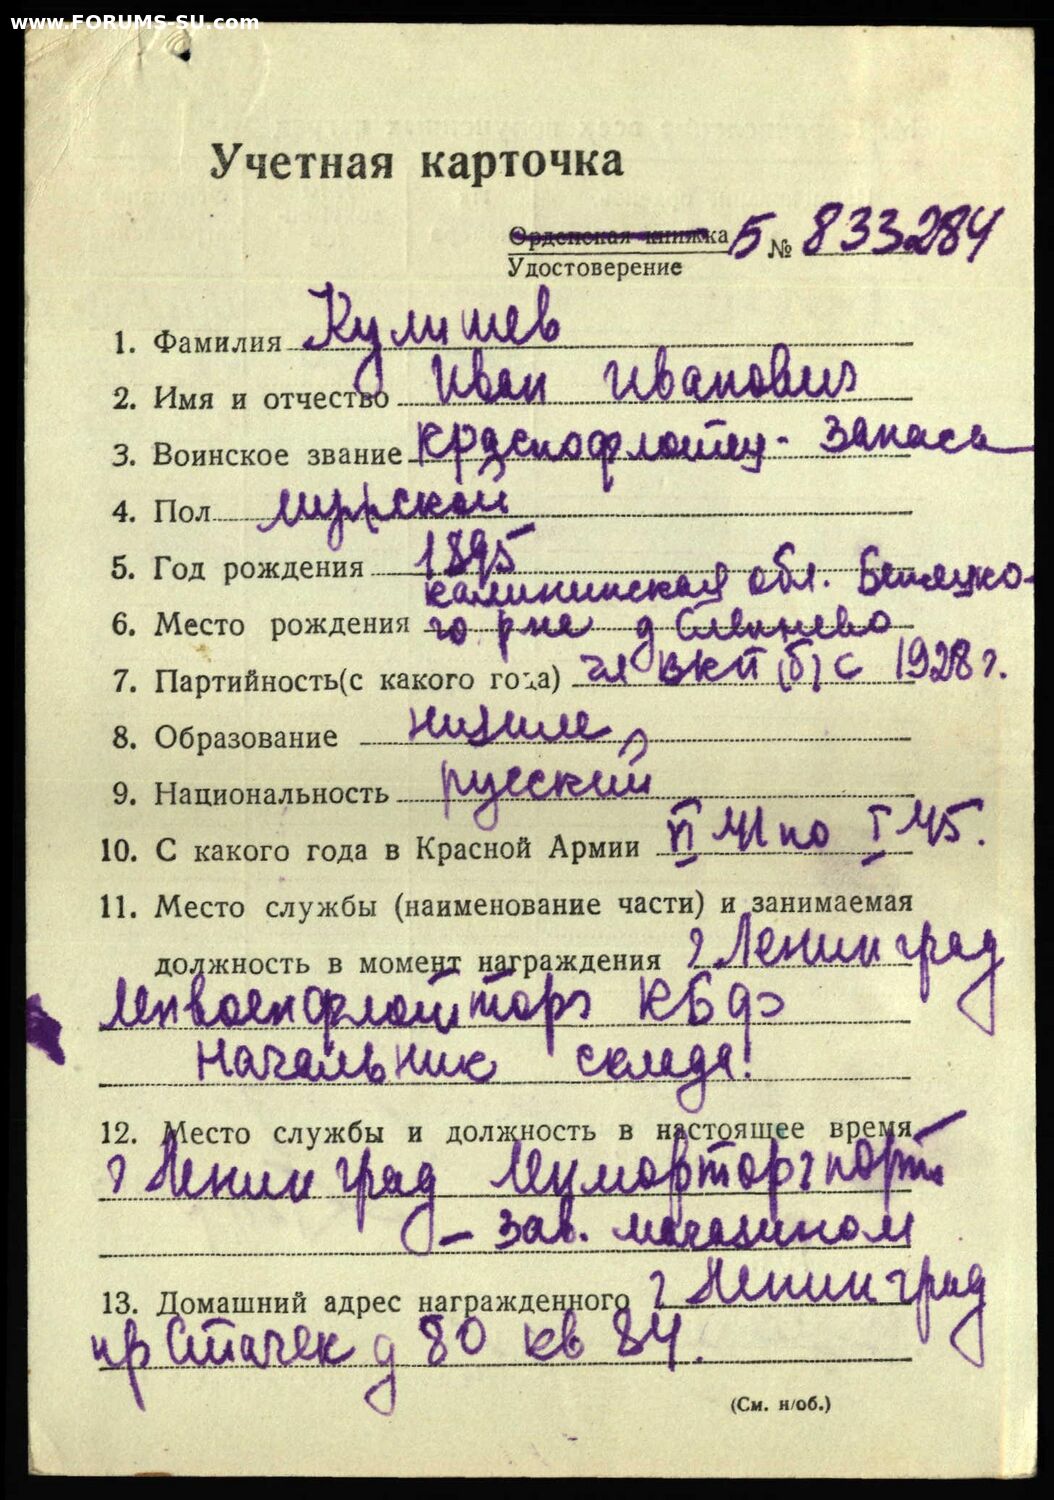 www.FORUMS-SU.com
Учетная карточка
Орденская книжка Б № 833284
Удостоверение
1. Фамилия Кулишев
2. Имя и отчество Иван Иванович
3. Воинское звание краснофлотец - запаса
4. Пол мужской
5. Год рождения 1895
калининская обл. Бежецко-
6. Место рождения го р-не д
7. Партийность(с какого года) чл ВКП(б) с 1928 г.
8. Образование низшее
9. Национальность русский
10. С какого года в Красной Армии VI 41 по I 45.
11. Место службы (наименование части) и занимаемая
должность в момент награждения г Ленинград
Ленвоенфлотторг КБФ
Начальник склада.
12. Место службы и должность в настоящее время
г Ленинград Ленморторгпорт
- Зав. магазином
13. Домашний адрес награжденного г Ленинград
пр Стачек д 80 кв 84.
(См. н/об.)